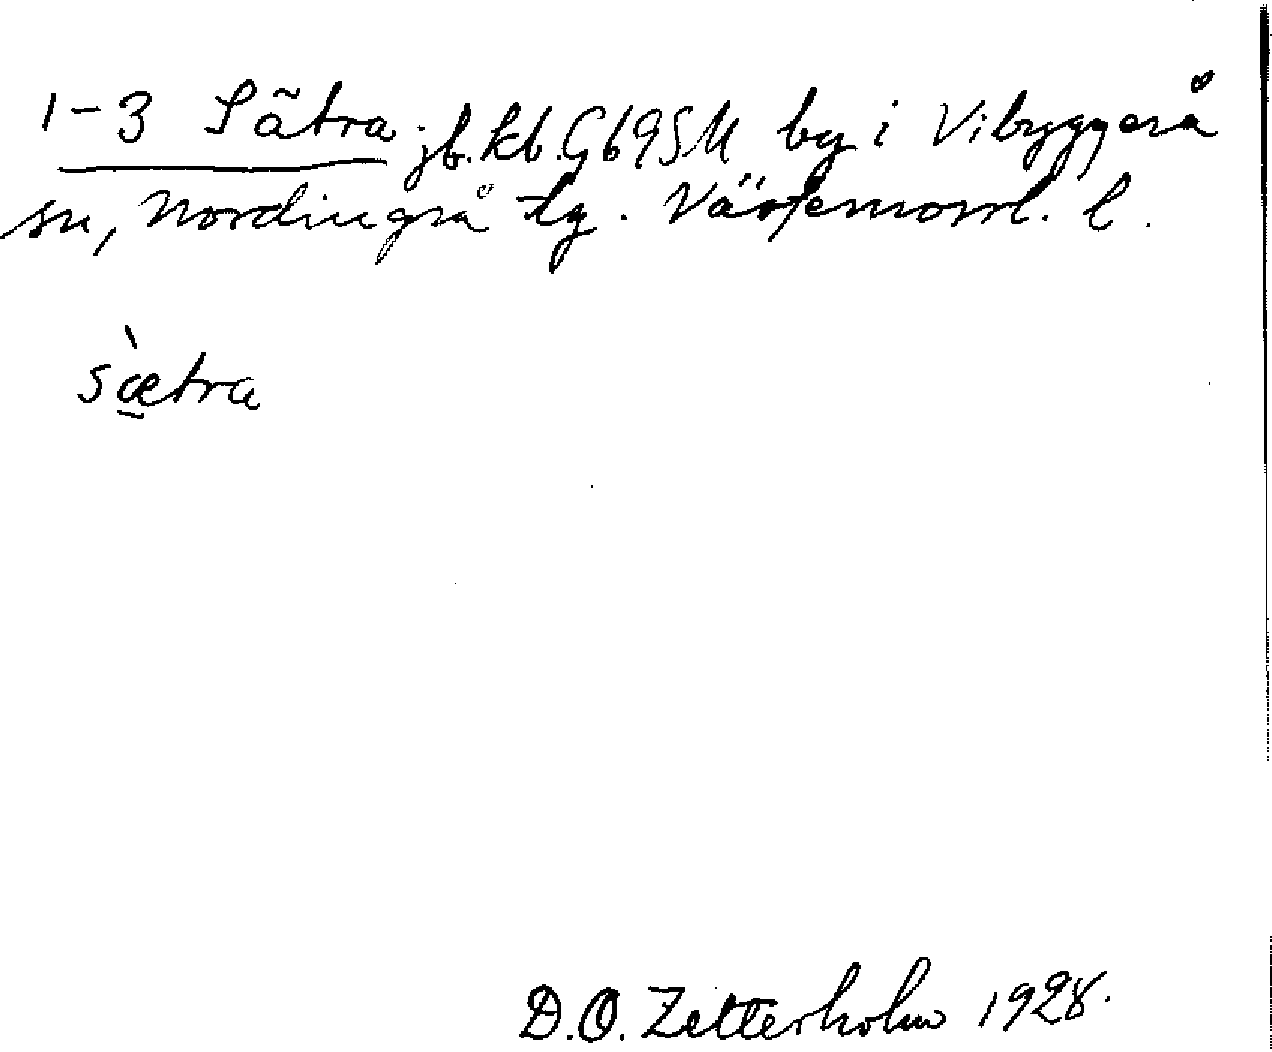 1-3 Sätra jb. kb. Gb 95 M by i Vibyggerå
sn, Nordingrå tg. Västernorrl. l.
sæ̀tra
D.O. Zetterholm 1928.